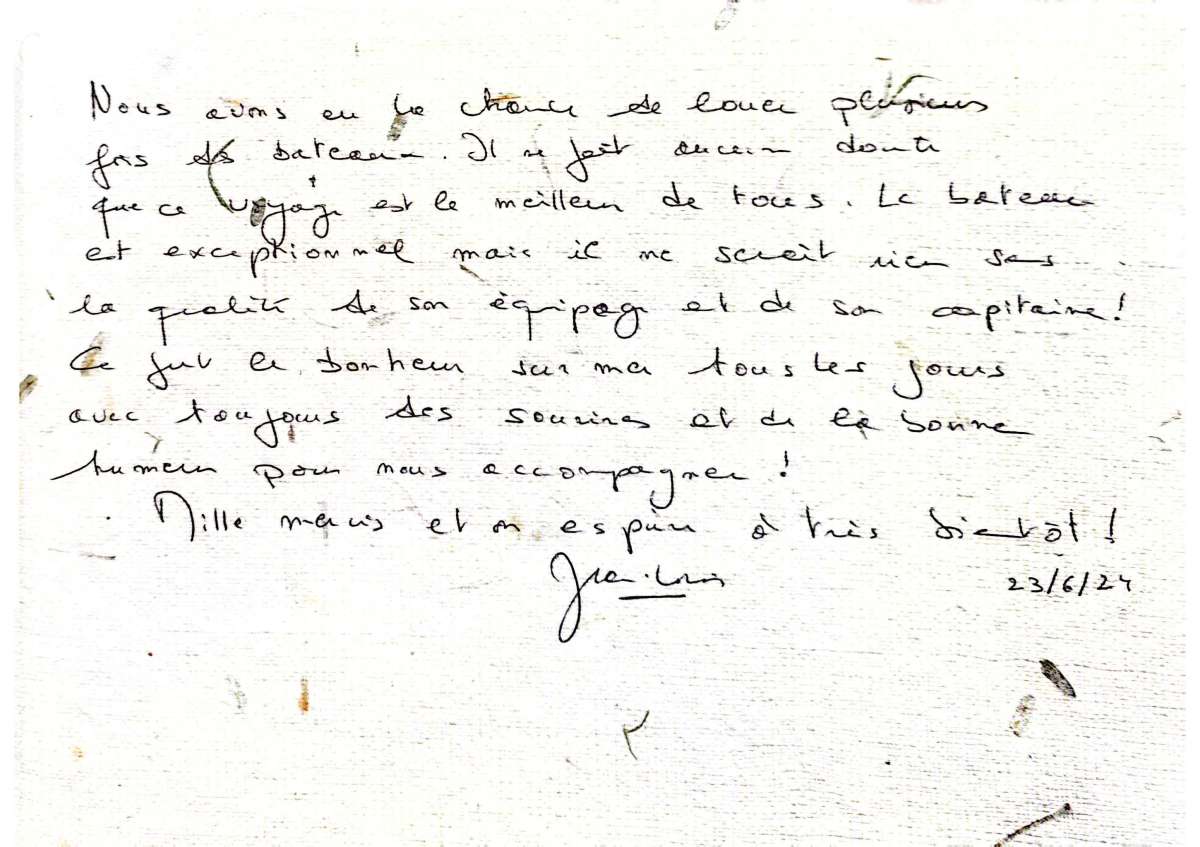 Nous avons eu la chance de louer plusieurs
fois des bateaux. Il ne fait aucun doute
que ce voyage est le meilleur de tous. Le bateau
est exceptionnel mais il ne serait rien sans
la qualité de son équipage et de son capitaine !
Ce fut le bonheur sur mer tous les jours
avec toujours des sourires et de la bonne
humeur pour nous accompagner !
Mille mercis et on espère à très bientôt !
Jean-Louis
23/6/24